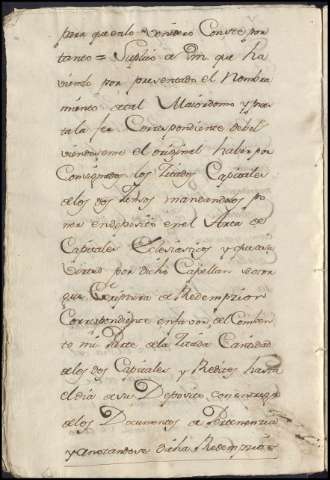 para que enlo venidero Conste por
tanto = Suplico a Vm que ha
viendo por presentado el Nombra
miento de tal Maiordomo y pues
ta la fee Correspondiente debol
viendoseme el original haber por
Consignados los Citados Capitales
de los dos zensos mandandolos po
ner en deposito en el Arca de
Capitales Eclesiasticos y que
por dicho Capellan se otor
gue Escriptura de Redempcion
Correspondiente en favor del Comben
to mi Parte de la Citada Cantidad
de los dos Capitales y Reditos hasta
el dia de su Deposito con entrega
de los Documentos de Pertenencia
y anotandose dicha Redempcion